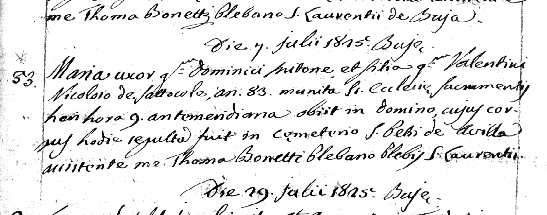 me Thoma Bonetti Plebano S. Laurentii de Buja.
Die 7. Julii 1815. Buje
53. Maria uxor q.m Dominici et filia q.m Valentini
Nicoloso de an. 83. munita S. Ecclesie sacramentis
heri hora 9. antemeridiana obiit in domino, cujus cor
pus hodie sepultu fuit in cemeterio S. de
assistente me Thoma Bonetti Plebano Plebis S. Laurentii.
Die 29. Julii 1815. Buje